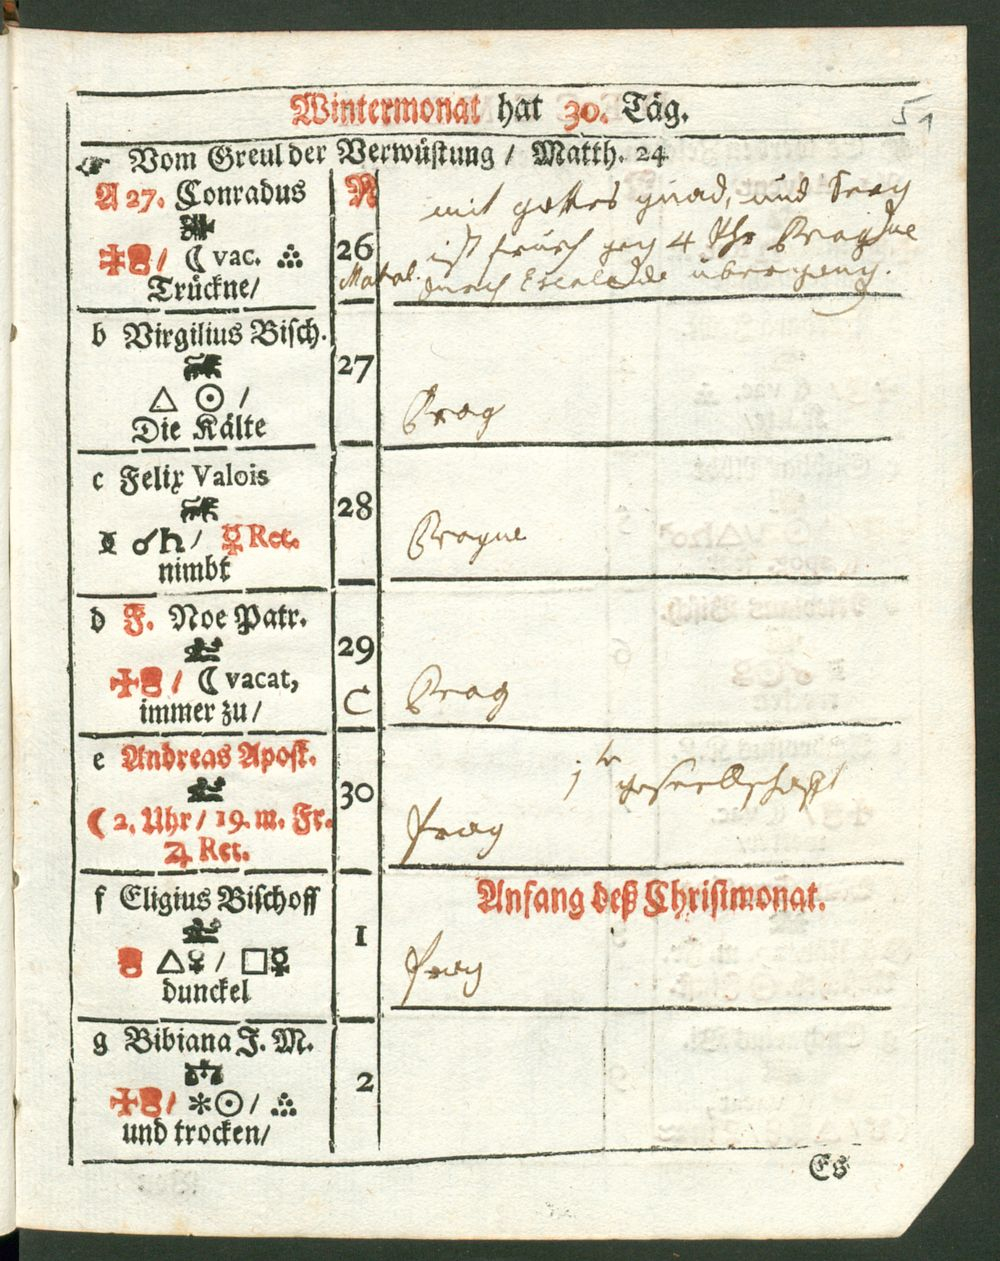 Wintermonat hat 30. Täg.
51
Vom Greul der Verwüstung / Matth. 24
A 27. Conradus
N
mit gottes gnad, und
☾ vac.
26
ist früsch gen 4 Uhr Prague
Trückne/
durch Escalade übergeng.
b Virgilius Bisch.
27
△ ☉ /
Die Kälte
Prag
c Felix Valois
28
☌ ♄ / ☿ Ret.
nimbt
Prague
d F. Noe Patr.
29
/ ☾ vacat,
immer zu /
C
Prag
e Andreas Apost.
30
1te gesellschafft
☾ 2. Uhr / 19. m. Fr.
♃ Ret.
Prag
f Eligius Bischoff
1
Anfang deß Christmonat.
△ ♀ / □ ☿
dunckel
Prag
g Bibiana J. M.
2
/ ✱ ☉ /
und trocken/
Es